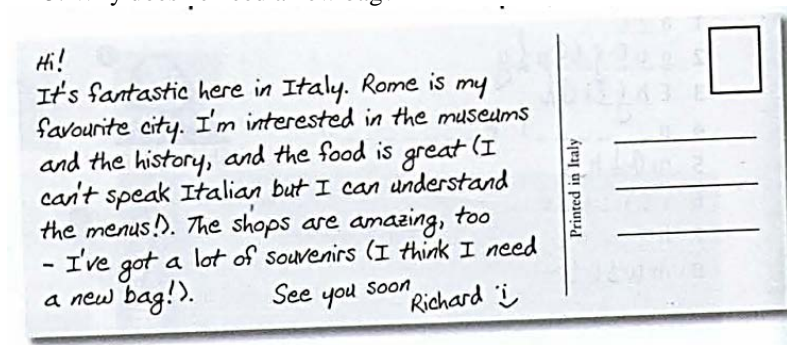 Hi!
It's fantastic here in Italy. Rome is my
favourite city. I'm interested in the museums
and the history, and the food is great (I
can't speak Italian but I can understand
the menus!). The shops are amazing, too
- I've got a lot of souvenirs (I think I need
a new bag!). See you soon
Richard
Printed in Italy